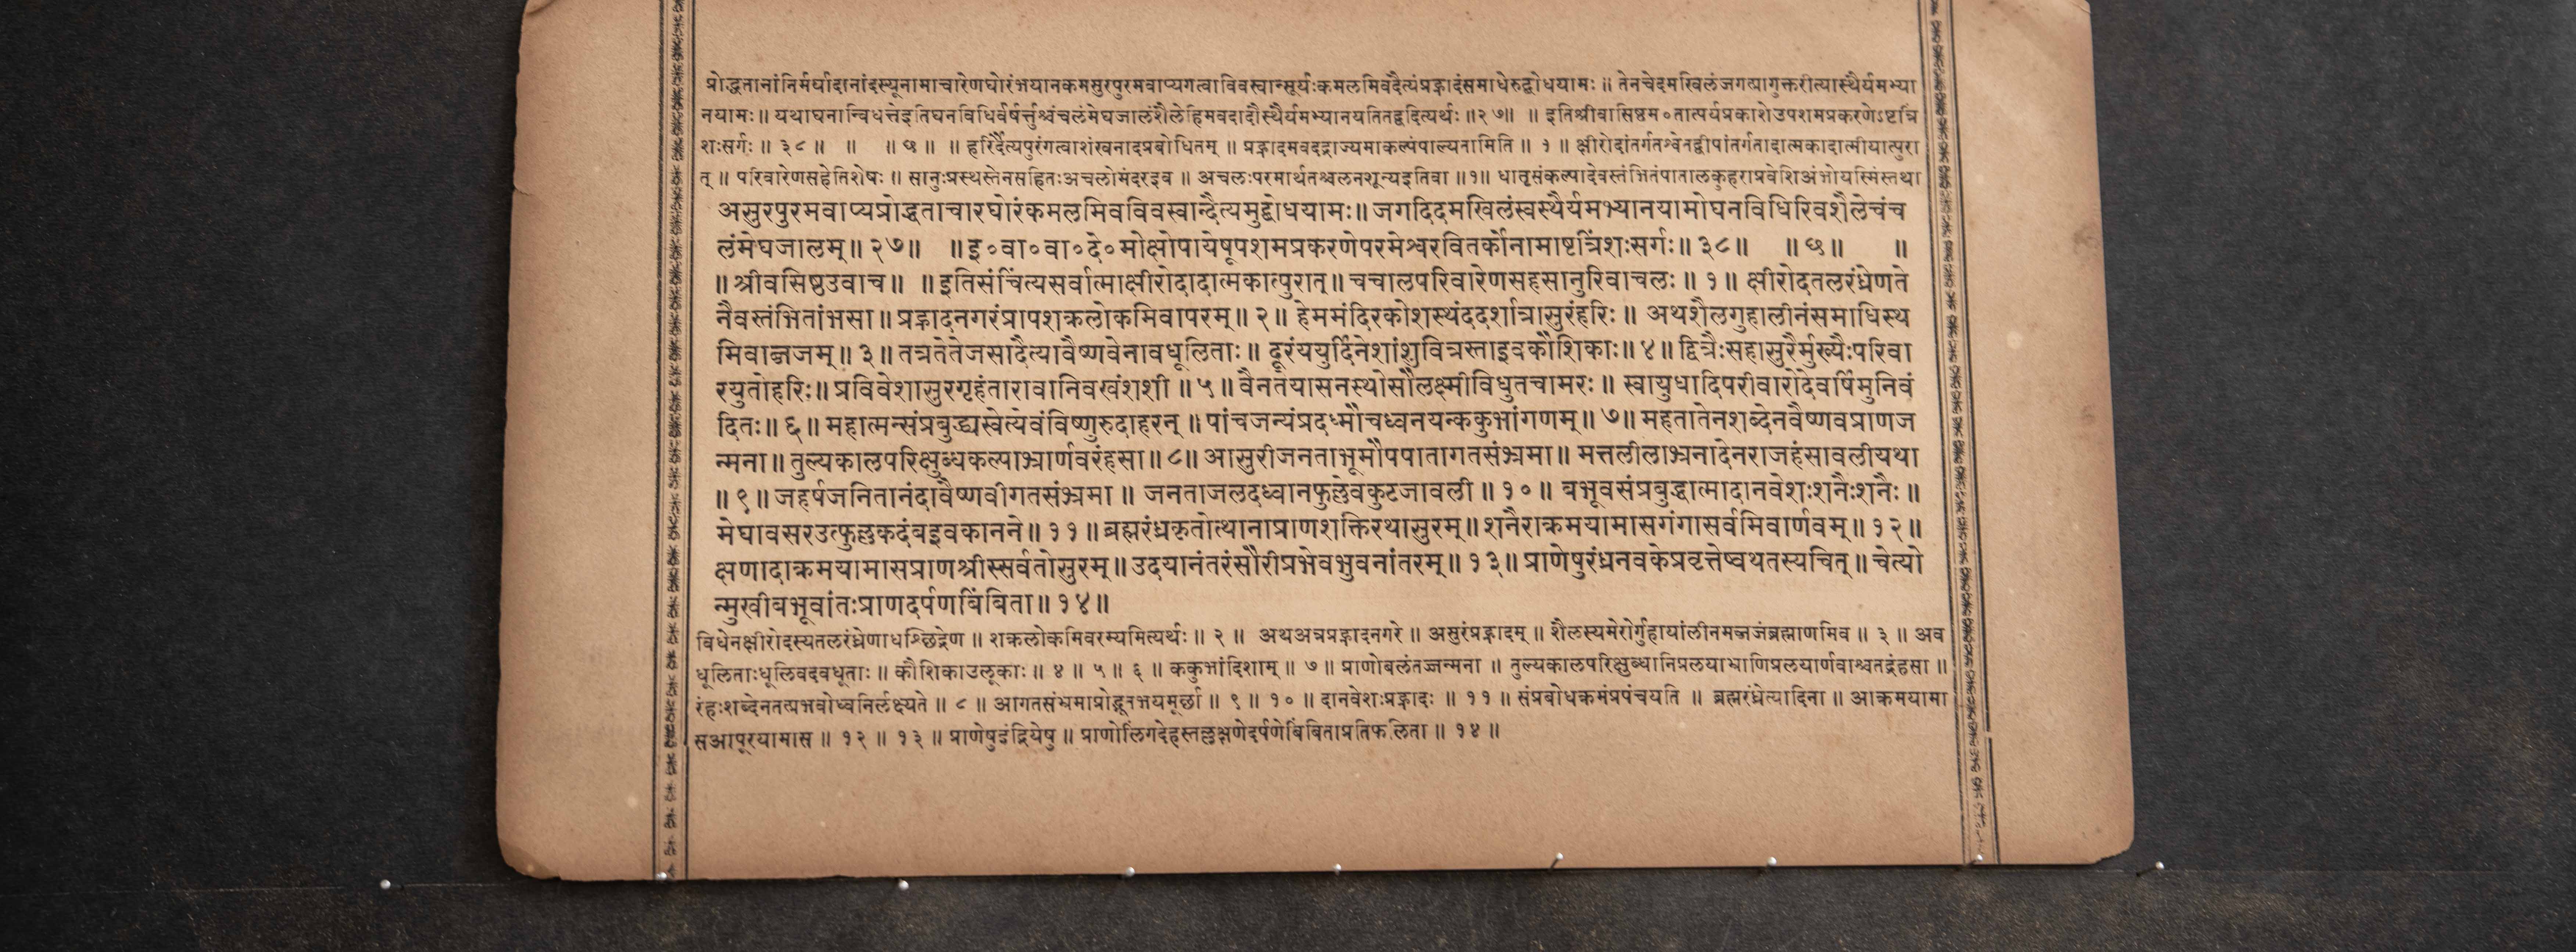 प्रोद्धतानांनिर्मर्यादानांदस्यूनामाचारेणघोरंभयानकमसुरपुरमवाप्यगत्वाविवस्वान्सूर्यःकमलमिवदैत्यंप्रह्लादंसमाधेरुद्बोधयामः ॥ तेनचेदमखिलंजगत्प्रागुक्तरीत्यास्थैर्यमभ्या
नयामः ॥ यथाघनान्विधत्तेइतिघनविधिर्वर्षर्त्तुश्चंचलंमेघजालंशैलेहिमवदादौस्थैर्यमभ्यानयतितद्वदित्यर्थः ॥२७॥ ॥ इतिश्रीवासिष्ठम०तात्पर्यप्रकाशेउपशमप्रकरणेऽष्टत्रिं
शःसर्गः ॥ ३८ ॥ ॥ ॥ छ ॥ ॥ हरिर्दैत्यपुरंगत्वाशंखनादप्रबोधितम् ॥ प्रह्लादमवदद्राज्यमाकल्पंपाल्यतामिति ॥ १ ॥ क्षीरोदांतर्गतश्वेतद्वीपांतर्गतादात्मकादात्मीयात्पुरा
त् ॥ परिवारेणसहेतिशेषः ॥ सानुःप्रस्थस्तेनसहितःअचलोमंदरइव ॥ अचलःपरमार्थतश्चलनशून्यइतिवा ॥१॥ धातृसंकल्पादेवस्तंभितंपातालकुहराप्रवेशिअंभोयस्मिंस्तथा
असुरपुरमवाप्यप्रोद्धताचारघोरंकमलमिवविवस्वान्दैत्यमुद्बोधयामः॥ जगदिदमखिलंस्वस्थैर्यमभ्यानयामोघनविधिरिवशैलेचंच
लंमेघजालम्॥ २७॥ ॥ इ०वा०वा०दे०मोक्षोपायेषूपशमप्रकरणेपरमेश्वरवितर्कोनामाष्टत्रिंशःसर्गः॥ ३८॥ ॥ छ॥ ॥
॥ श्रीवसिष्ठउवाच॥ ॥ इतिसंचिंत्यसर्वात्माक्षीरोदादात्मकात्पुरात्॥ चचालपरिवारेणसहसानुरिवाचलः ॥ १॥ क्षीरोदतलरंध्रेणते
नैवस्तंभितांभसा॥ प्रह्लादनगरंप्रापशक्रलोकमिवापरम्॥ २॥ हेममंदिरकोशस्थंददर्शात्रासुरंहरिः॥ अथशैलगुहालीनंसमाधिस्थ
मिवाब्जजम्॥ ३॥ तत्रतेतेजसादैत्यावैष्णवेनावधूलिताः॥ दूरंययुर्दिनेशांशुवित्रस्ताइवकौशिकाः॥ ४॥ द्वित्रैःसहासुरैर्मुख्यैःपरिवा
रयुतोहरिः॥ प्रविवेशासुरगृहंतारावानिवखंशशी ॥ ५॥ वैनतेयासनस्थोसौलक्ष्मीविधुतचामरः॥ स्वायुधादिपरीवारोदेवर्षिमुनिवं
दितः॥ ६॥ महात्मन्संप्रबुद्ध्यस्वेत्येवंविष्णुरुदाहरन् ॥ पांचजन्यंप्रदध्मौचध्वनयन्ककुभांगणम्॥ ७॥ महतातेनशब्देनवैष्णवप्राणज
न्मना॥ तुल्यकालपरिक्षुब्धकल्पाभ्रार्णवरंहसा॥ ८॥ आसुरीजनताभूमौपपातागतसंभ्रमा॥ मत्तलीलाभ्रनादेनराजहंसावलीयथा
॥ ९॥ जहर्षजनितानंदावैष्णवीगतसंभ्रमा ॥ जनताजलदध्वानफुल्लेवकुटजावली ॥ १०॥ बभूवसंप्रबुद्धात्मादानवेशःशनैःशनैः॥
मेघावसरउत्फुल्लकदंबइवकानने॥ ११॥ ब्रह्मरंध्रकृतोत्थानाप्राणशक्तिरथासुरम्॥ शनैराक्रमयामासगंगासर्वमिवार्णवम्॥ १२॥
क्षणादाक्रमयामासप्राणश्रीस्सर्वतोसुरम्॥ उदयानंतरंसौरीप्रभेवभुवनांतरम्॥ १३॥ प्राणेषुरंध्रनवकेप्रवृत्तेष्वथतस्यचित्॥ चेत्यो
न्मुखीबभूवांतःप्राणदर्पणबिंबिता॥ १४॥
विधेनक्षीरोदस्यतलरंध्रेणाधश्छिद्रेण ॥ शक्रलोकमिवरम्यमित्यर्थः ॥ २ ॥ अथअत्रप्रह्लादनगरे ॥ असुरंप्रह्लादम् ॥ शैलस्यमेरोर्गुहायांलीनमब्जजंब्रह्माणमिव ॥ ३ ॥ अव
धूलिताःधूलिवदवधूताः ॥ कौशिकाउलूकाः ॥ ४ ॥ ५ ॥ ६ ॥ ककुभांदिशाम् ॥ ७ ॥ प्राणोबलंतज्जन्मना ॥ तुल्यकालपरिक्षुब्धानिप्रलयाभ्राणिप्रलयार्णवाश्चतद्रंहसा ॥
रंहःशब्देनतत्प्रभवोध्वनिर्लक्ष्यते ॥ ८ ॥ आगतसंभ्रमाप्रोद्भूतभयमूर्छा ॥ ९ ॥ १० ॥ दानवेशःप्रह्लादः ॥ ११ ॥ संप्रबोधक्रमंप्रपंचयति ॥ ब्रह्मरंध्रेत्यादिना ॥ आक्रमयामा
सआपूरयामास ॥ १२ ॥ १३ ॥ प्राणेषुइंद्रियेषु ॥ प्राणोलिंगदेहस्तल्लक्षणेदर्पणेबिंबिताप्रतिफलिता ॥ १४ ॥